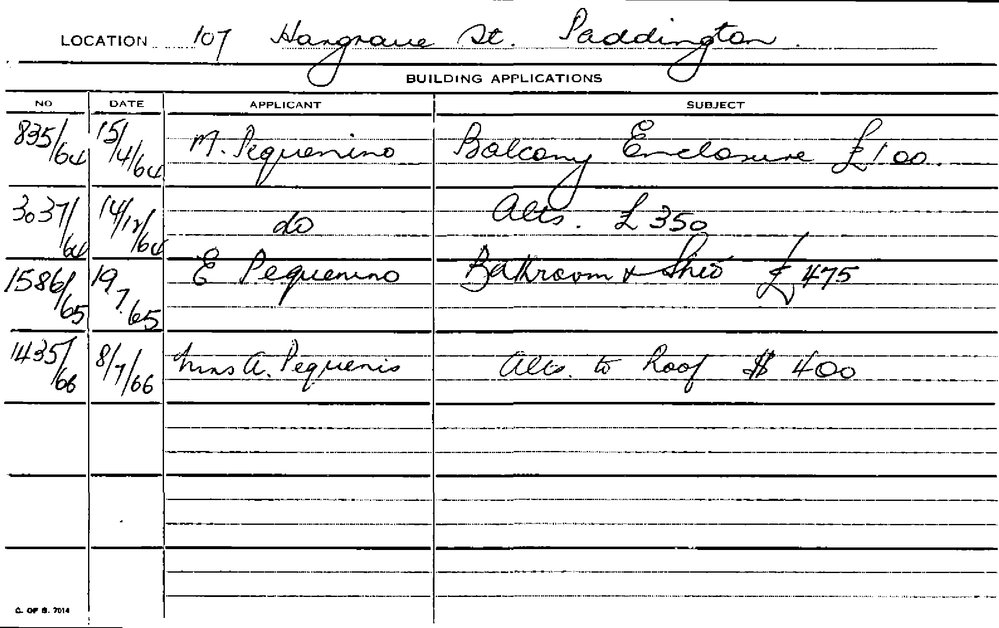 LOCATION 107 Hargrave St. Paddington.
BUILDING APPLICATIONS
NO DATE APPLICANT SUBJECT
835/64 15/4/64 M. Pequenino Balcony Enclosure £100.
3037/64 14/12/64 do Alts. £350
1586/65 19/7/65 E Pequenino Bathroom & Shed £475
1435/66 8/7/66 Mrs A. Pequenis Alts. to Roof $400
C. OF S. 7014